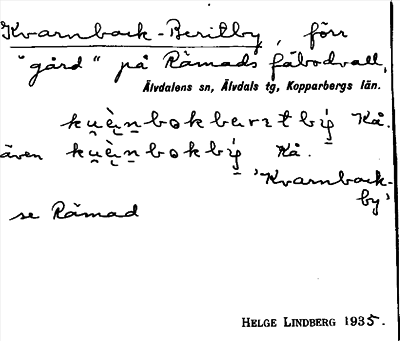 Kvarnback-Beritby, förr
"gård" på Råmads fäbodvall,
Älvdalens sn, Älvdals tg, Kopparbergs län.
Kå.
även Kå.
'Kvarnback-
by'
se Råmad
HELGE LINDBERG 1935.